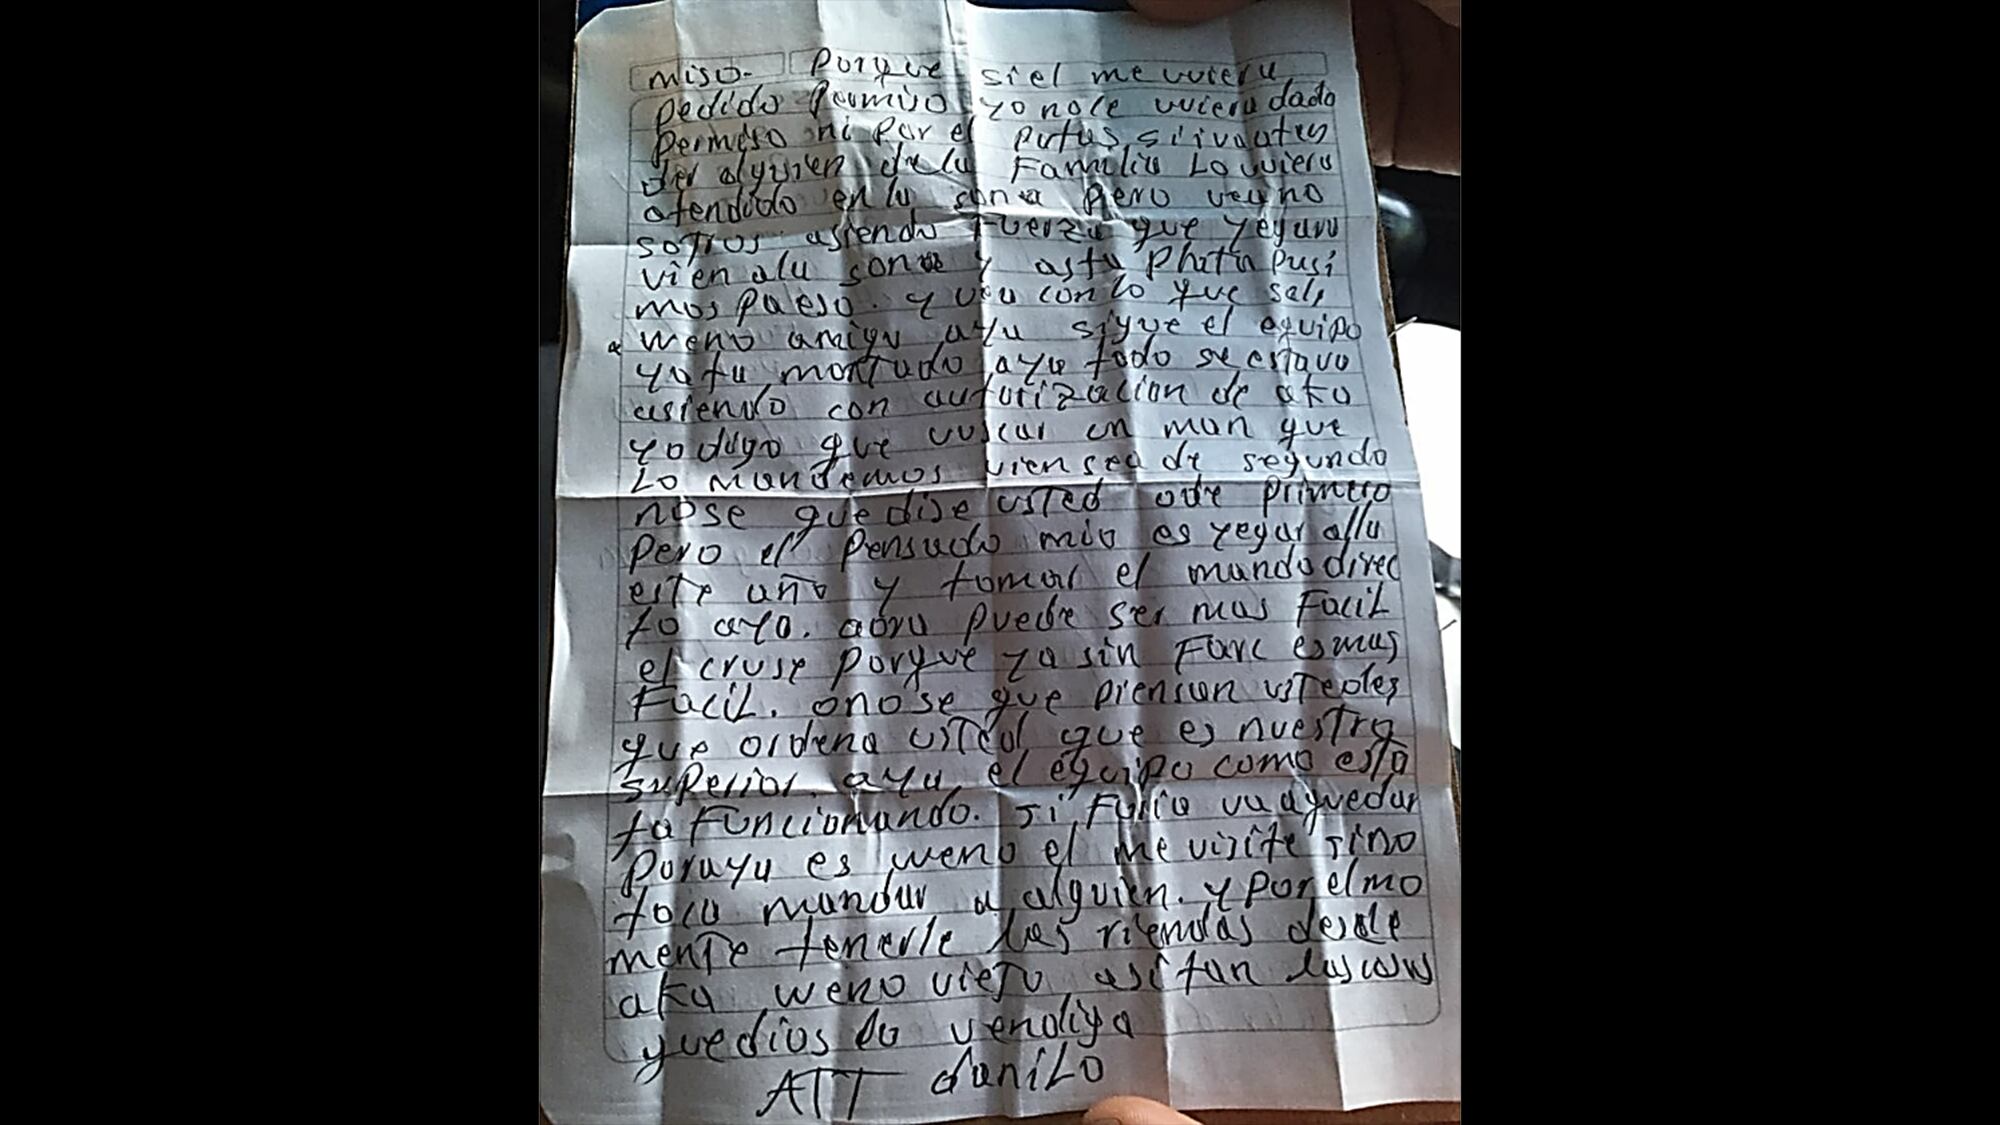 miso. Porque si el me uviera
pedido Permiso yo no le uviera dado
Permiso ni por el putas si ivantes
der alguien de la Familia Lo uviera
atendido en la sona pero vea no
sotros asiendo Fuerza que yegara
vien ala sona y asta Plata pusi
mos pa eso. y vea con lo que sali
weno amigo aya sigue el equipo
ya ta montado aya todo se estava
asiendo con autorizacion de aka
yo digo que vuscar un man que
Lo mandemos vien sea de segundo
nose que dise usted o de primero
pero el pensado mio es yegar alla
este año y tomar el mando direc
to aya. aora puede ser mas Facil
el cruse porque ya sin Farc es mas
Facil. onose que piensan ustedes
que ordena usted que es nuestro
superior. aya el equipo como esta
ta Funcionando. si Furia va aquedar
por aya es weno el me visite sino
toca mandar a alguien. y por el mo
mente tenerle las riendas desde
aka weno viejo asi tan las cosas
que dios lo vendiga
ATT daniLo